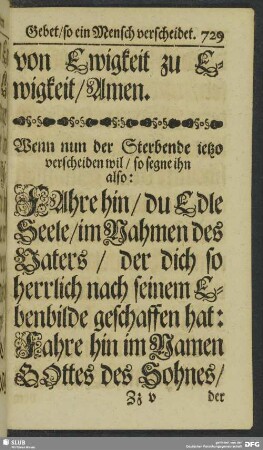 Gebet/so ein Mensch verscheidet. 729
von Ewigkeit zu E-
wigkeit/Amen.
Wenn nun der Sterbende ietzo
verscheiden wil/ so segne ihn
also:
FAhre hin/ du Edle
Seele/im Nahmen des
Vaters/ der dich so
herrlich nach seinem E-
benbilde geschaffen hat:
Fahre hin im Namen
GOttes des Sohnes/
Zz v der
SLUB
DFG